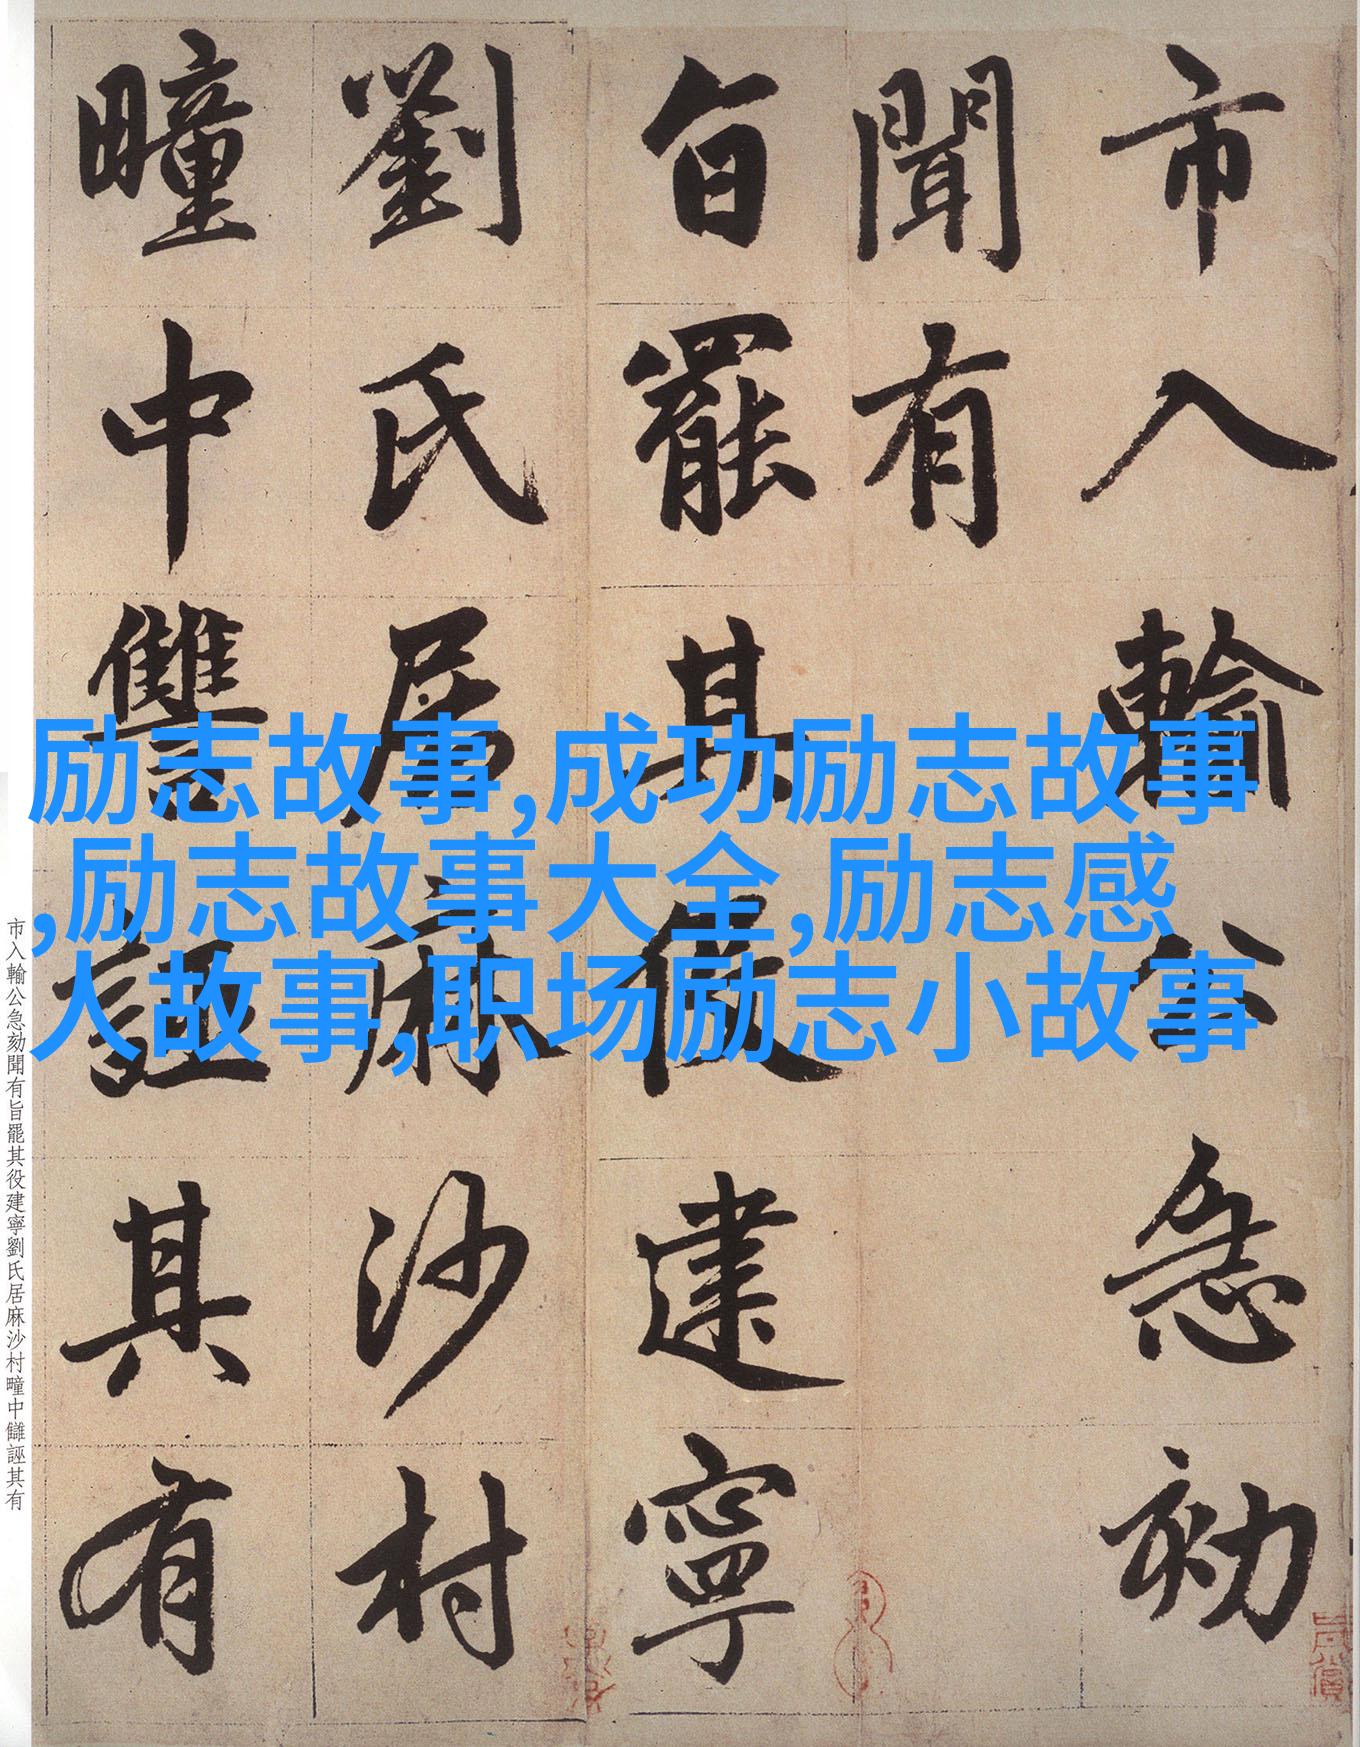 市入輸公急劾
聞有
旨罷其役建寧
劉氏居麻沙村
疃中讐誣其有
市入輸公急劾聞有旨罷其役建寧劉氏居麻沙村疃中讎誣其有
励志故事,成功励志故事
,励志故事大全,励志感
人故事,职场励志小故事